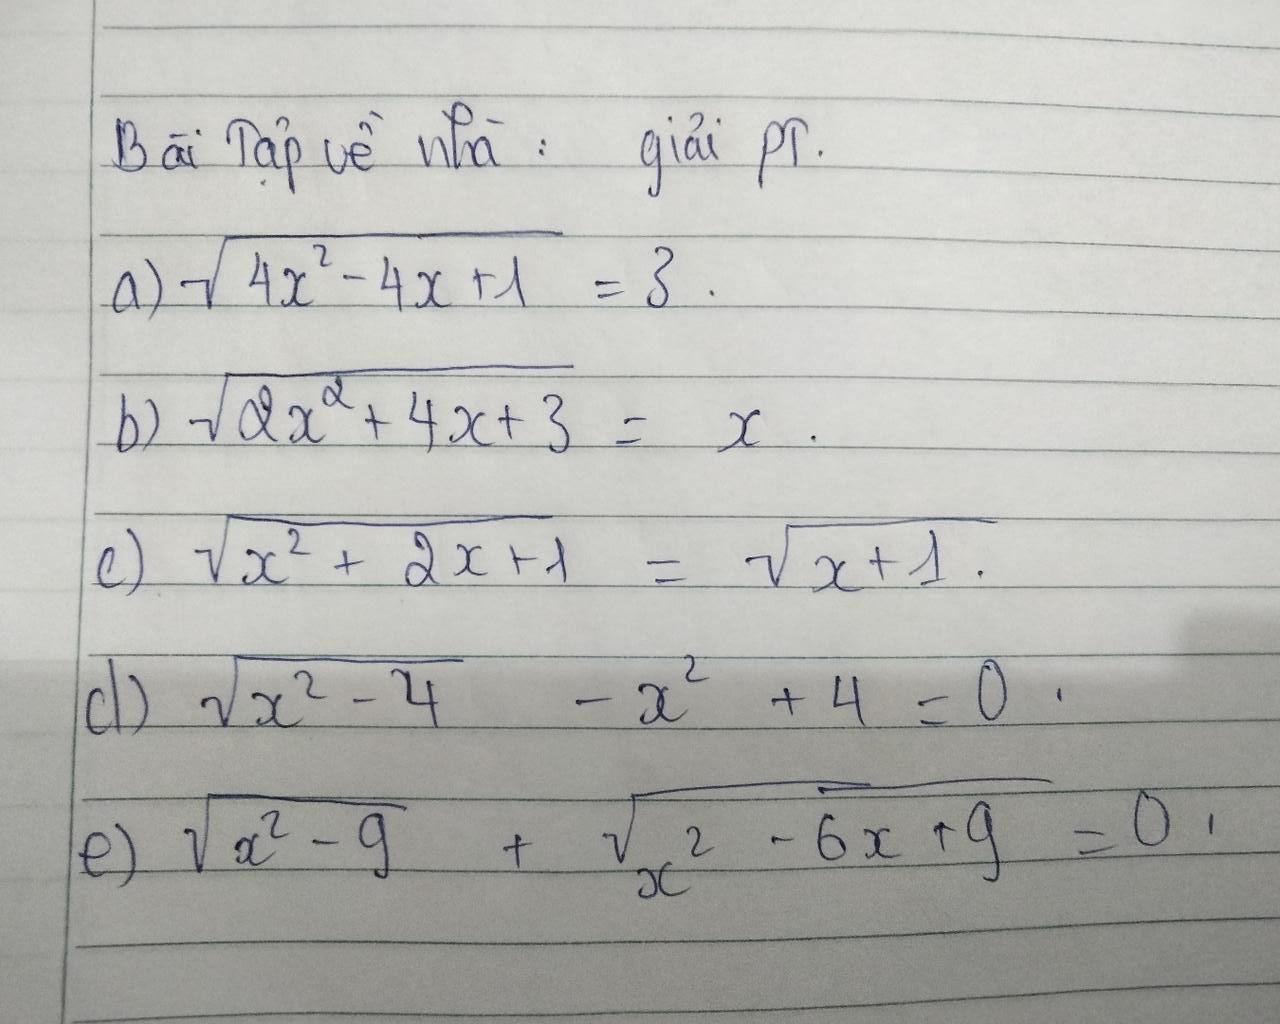 Bài Tập về nhà : giải PT.
a) √(4x² - 4x + 1) = 3.
b) √(2x² + 4x + 3) = x.
c) √(x² + 2x + 1) = √(x + 1).
d) √(x² - 4) - x² + 4 = 0.
e) √(x² - 9) + √(x² - 6x + 9) = 0.